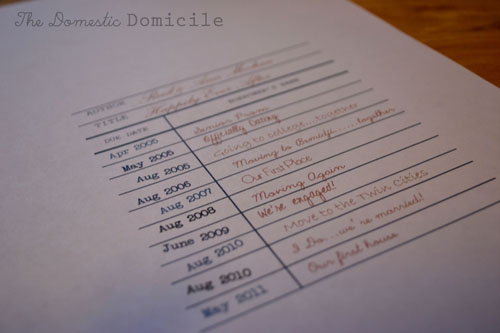 The Domestic Domicile
AUTHOR
TITLE Happily Ever After
DUE DATE BORROWER'S NAME
Apr 2005 Senior Prom
May 2005 Officially Dating
Aug 2005 Going to college...together
Aug 2006 Moving to Bemidji......together
Aug 2007 Our First Place
Aug 2008 Moving Again
June 2009 We're engaged!
Aug 2010 Move to the Twin Cities
Aug 2010 I Do...we're married!
May 2011 Our first house